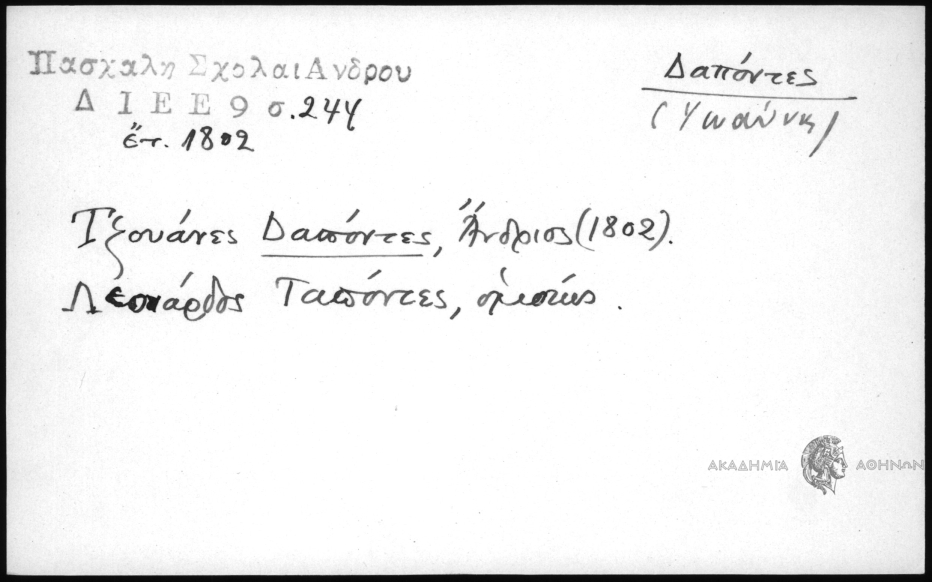 Πασχαλη Σχολαι Ανδρου
Δ Ι Ε Ε 9 σ. 244
ἔτ. 1802
Δαπόντες
(Ἰωάννης)
Τζουάνες Δαπόντες, Ἄνδριος (1802).
Λεονάρδος Ταπόντες, ὁμοίως.
ΑΚΑΔΗΜΙΑ ΑΘΗΝΩΝ